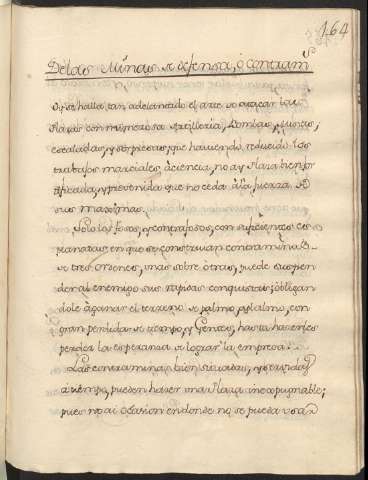 164
De las Minas de defensa, ò contram.s
Oy se halla tan adelantado el arte de atacar las
Plazas con numerosa Artilleria, Bombas, Minas,
escaladas, y sorpresas, que haviendo reducido los
trabajos marciales, à ciencia, no ay Plaza bien for
tificada, y prevenida que no ceda à la fuerza de
sus maximas.
Solo los fosos, y contrafosos, con suficientes es
manatas, en que se construian contraminas
de tres ordenes, unas sobre otras, puede suspen
der al enemigo sus rapidas conquistas, obligan
dole à ganar el terreno de palmo, à palmo, con
gran perdida de tiempo, y Gentes, hasta hacerles
perder la esperanza de lograr la empresa.
Las contraminas bien situadas, y
à tiempo, pueden hacer una Plaza inexpugnable;
pues no ai ocasion en donde no se pueda usar